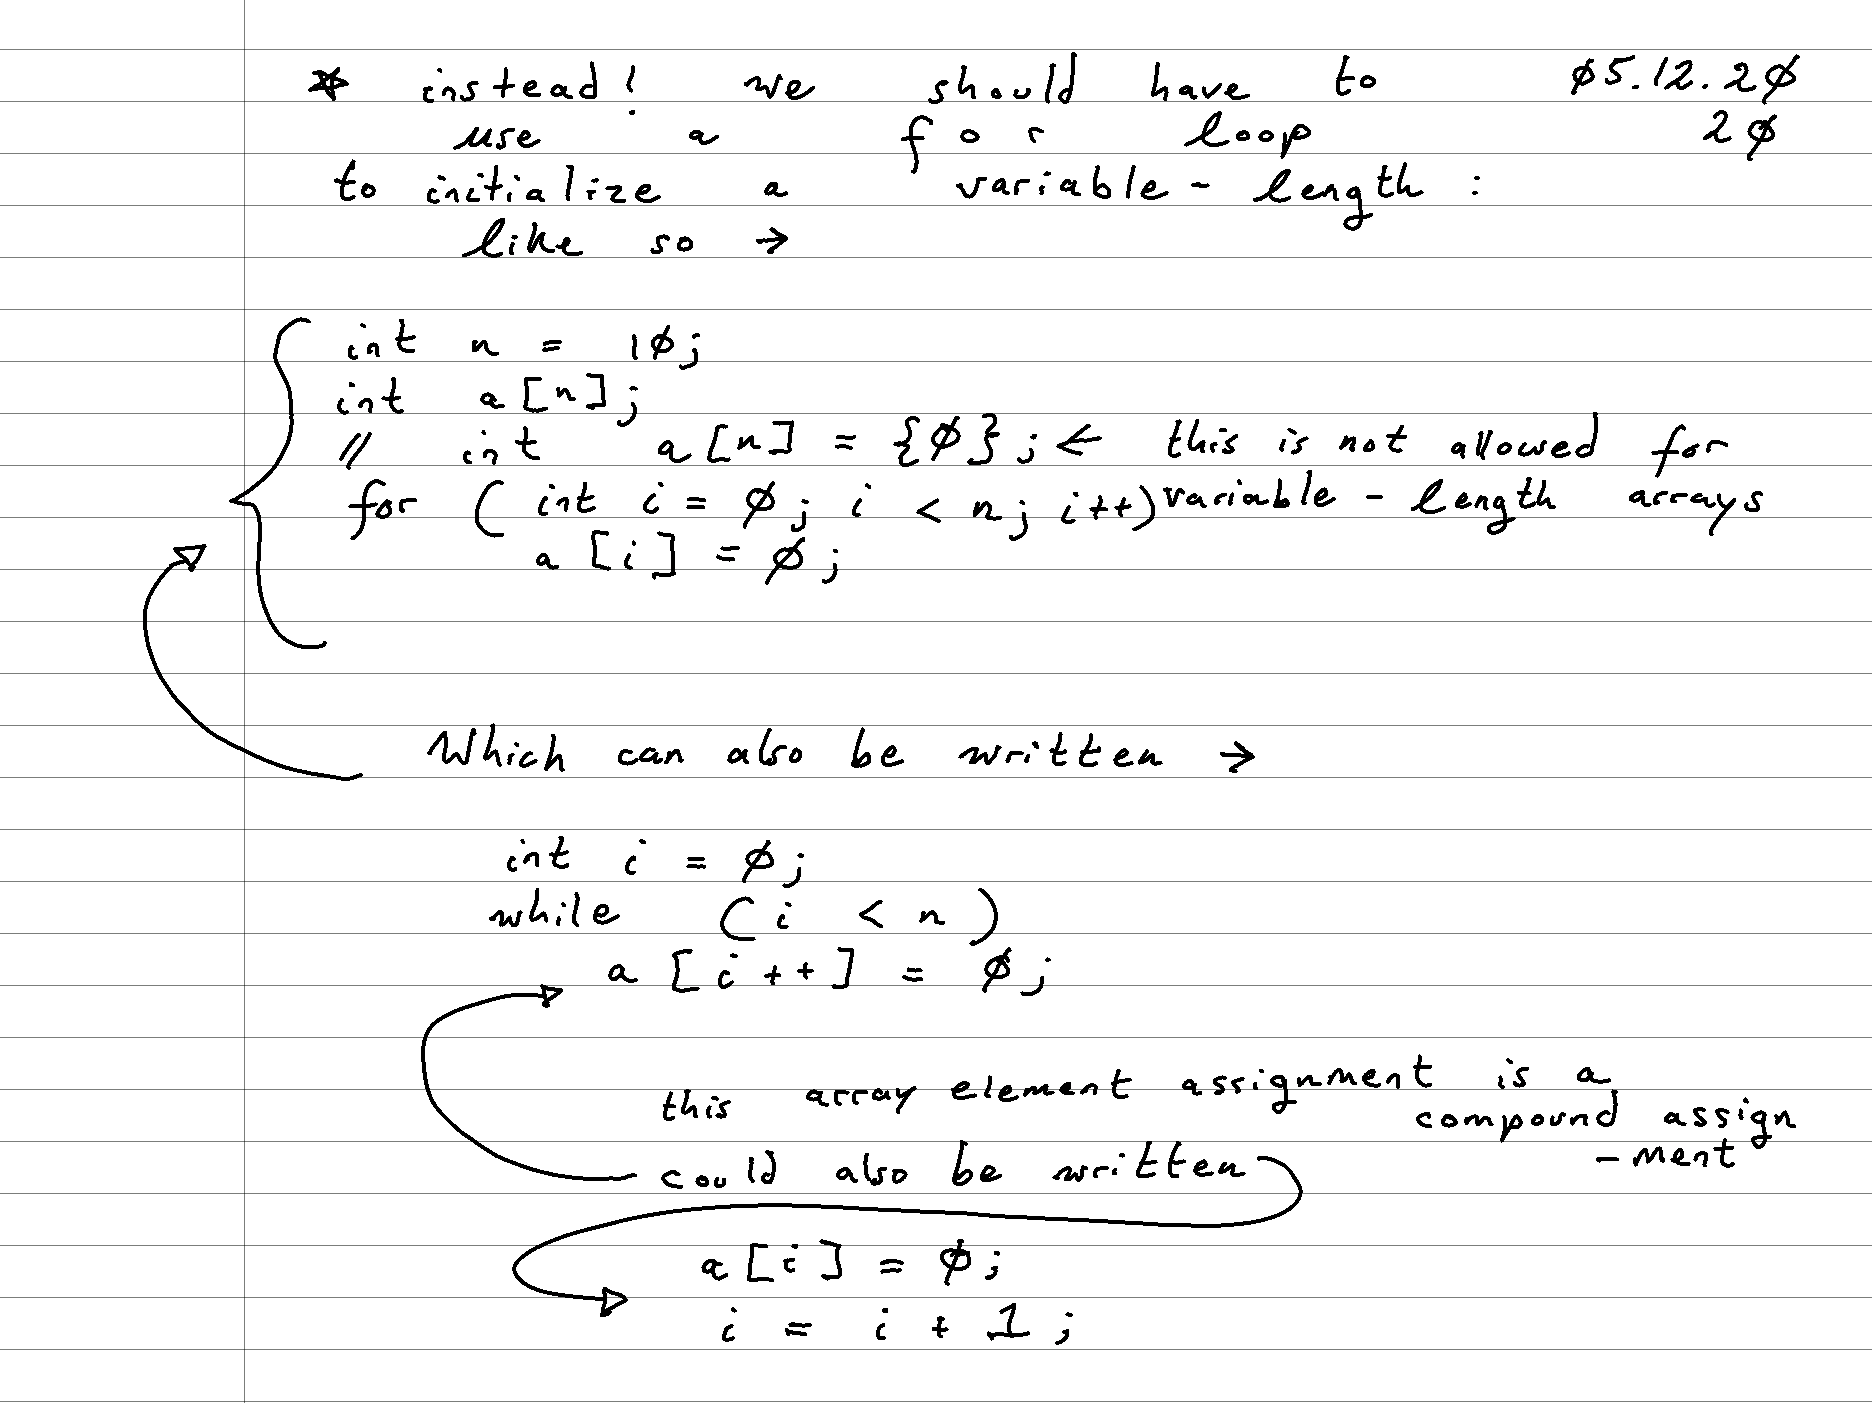 * instead! we should have to
use a for loop
to initialize a variable-length:
like so →
05.12.20
20
int n = 10;
int a[n];
// int a[n] = {0}; ← this is not allowed for
variable-length arrays
for (int i = 0; i < n; i++)
a[i] = 0;
Which can also be written →
int i = 0;
while (i < n)
a[i++] = 0;
this array element assignment is a
compound assign
-ment
could also be written
a[i] = 0;
i = i + 1;